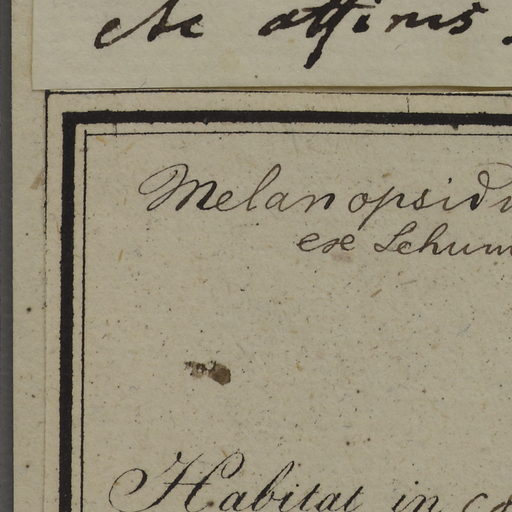 etc affinis.
Melanopsid
ex Schum
Habitat in co